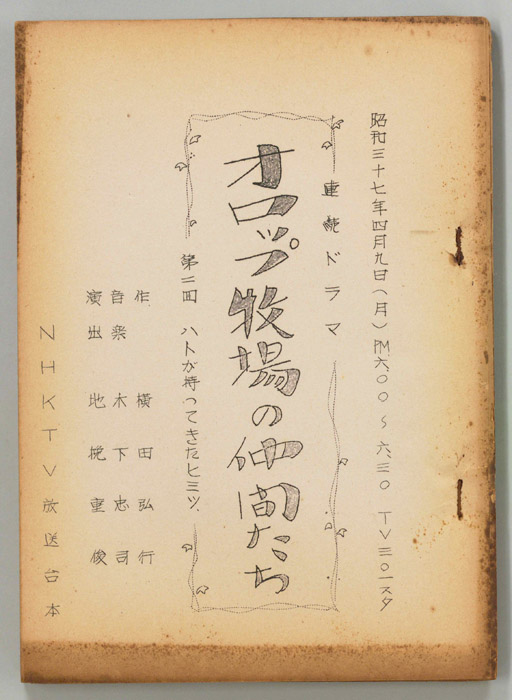 昭和三十七年四月九日(月) PM六〇〇～六、三〇 TV三〇一スタ
連続ドラマ
オロップ牧場の仲間たち
第二回 ハトが持ってきたヒミツ、
作 横田弘行
音楽 木下忠司
演出 地挽重俊
NHKTV放送台本